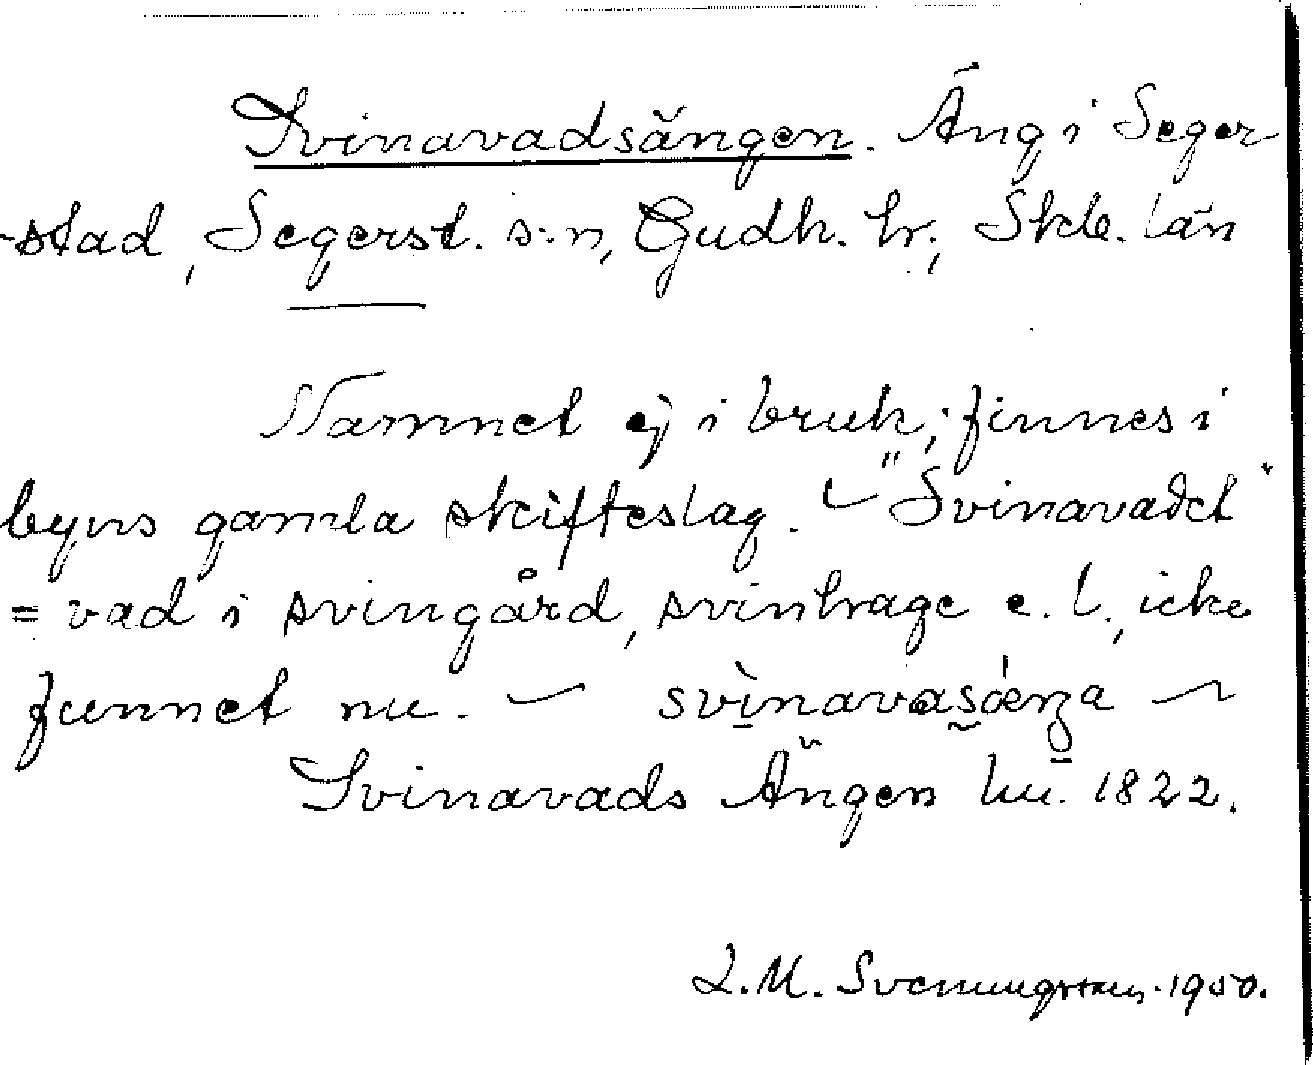 Svinavadsängen. Äng i Seger-
-stad, Segerst. s:n, Gudh. hr., Skb. län
Namnet ej i bruk, finnes i
byns gamla skifteslag. — "Svinavadet"
= vad i svingård, svinhage e. l., icke
funnet nu. — —
Svinavads Ängen hu. 1822.
L. M. Svenungsson. 1950.